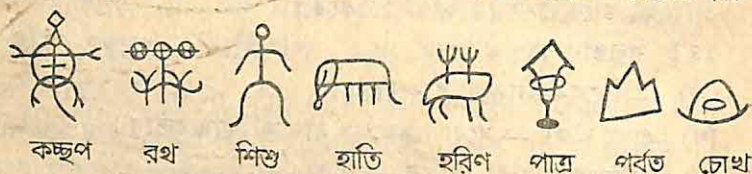 কচ্ছপ রথ শিশু হাতি হরিণ পাত্র পর্বত চোখ